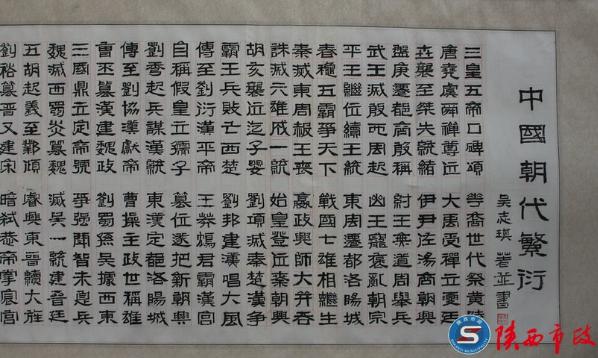 中國朝代繁衍
吴志琪 著並書
三皇五帝口碑頌 裔世代祭黄陵
唐堯虞舜禪尊位 大禹受禪立夏廷
襲至桀失統緒 伊尹佐湯商朝興
盤庚遷都商殷稱 紂王無道周舉兵
武王滅殷西周起 幽王寵褒亂朝宗
平王繼位續王統 東周遷都洛陽城
春秋五霸爭天下 戰國七雄相繼生
秦滅東周赧王喪 嬴政興師大并吞
誅滅六雄成一統 始皇登位秦朝興
胡亥襲位迄子嬰 劉項滅秦楚漢爭
霸王兵敗亡西楚 劉邦建漢唱大風
傳至劉衍漢平帝 王莽鴆君霸漢宮
自稱假皇立孺子 篡位遂把新朝興
劉秀起兵謀漢統 東漢定都洛陽城
傳至劉協漢獻帝 曹操主政世稱雄
曹丕篡漢建魏政 劉蜀孫吴據西東
三國鼎立定帝號 爭强鬥智未息兵
魏滅西蜀炎篡魏 滅吴一統建晉廷
五胡起義至鄴傾 睿興東晉續大旌
劉裕篡晉又建宋 暗弒恭帝掌宸宮
陕西市政